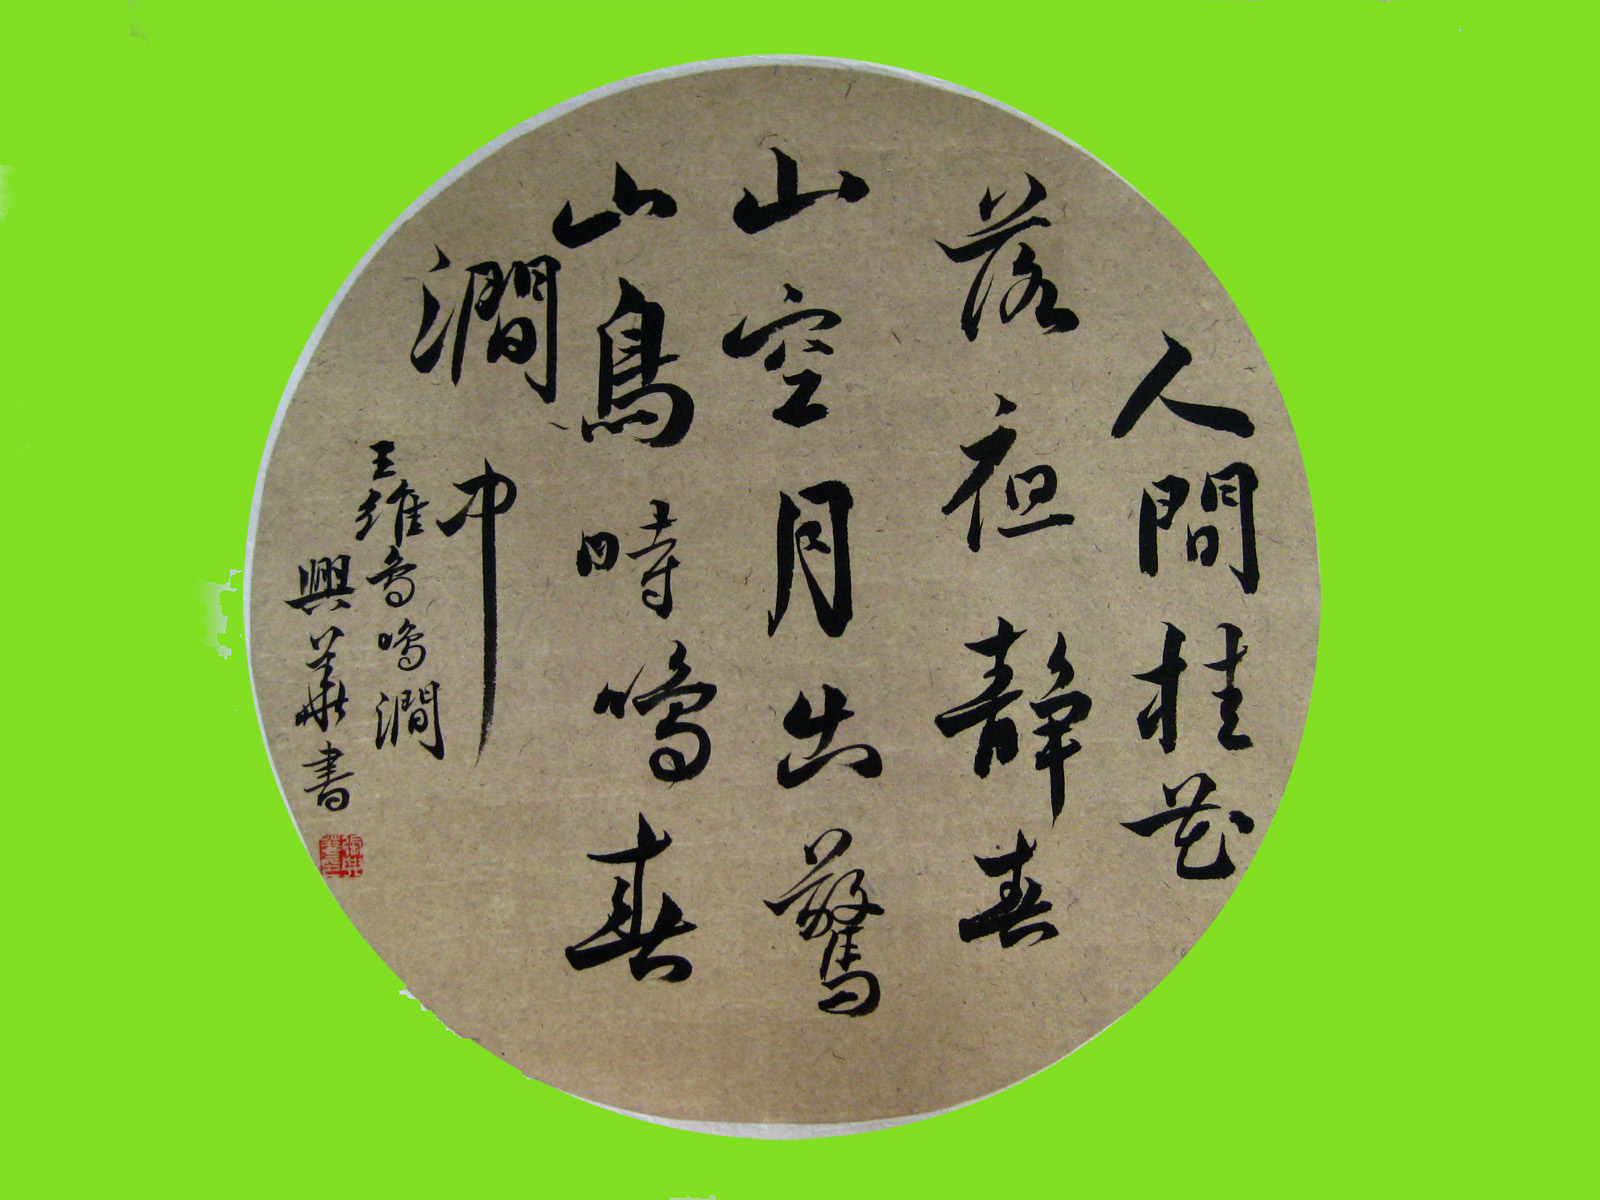 人間桂花
落夜静春
山空月出驚
山鳥時鳴春
澗中
王維鳥鳴澗
興華書